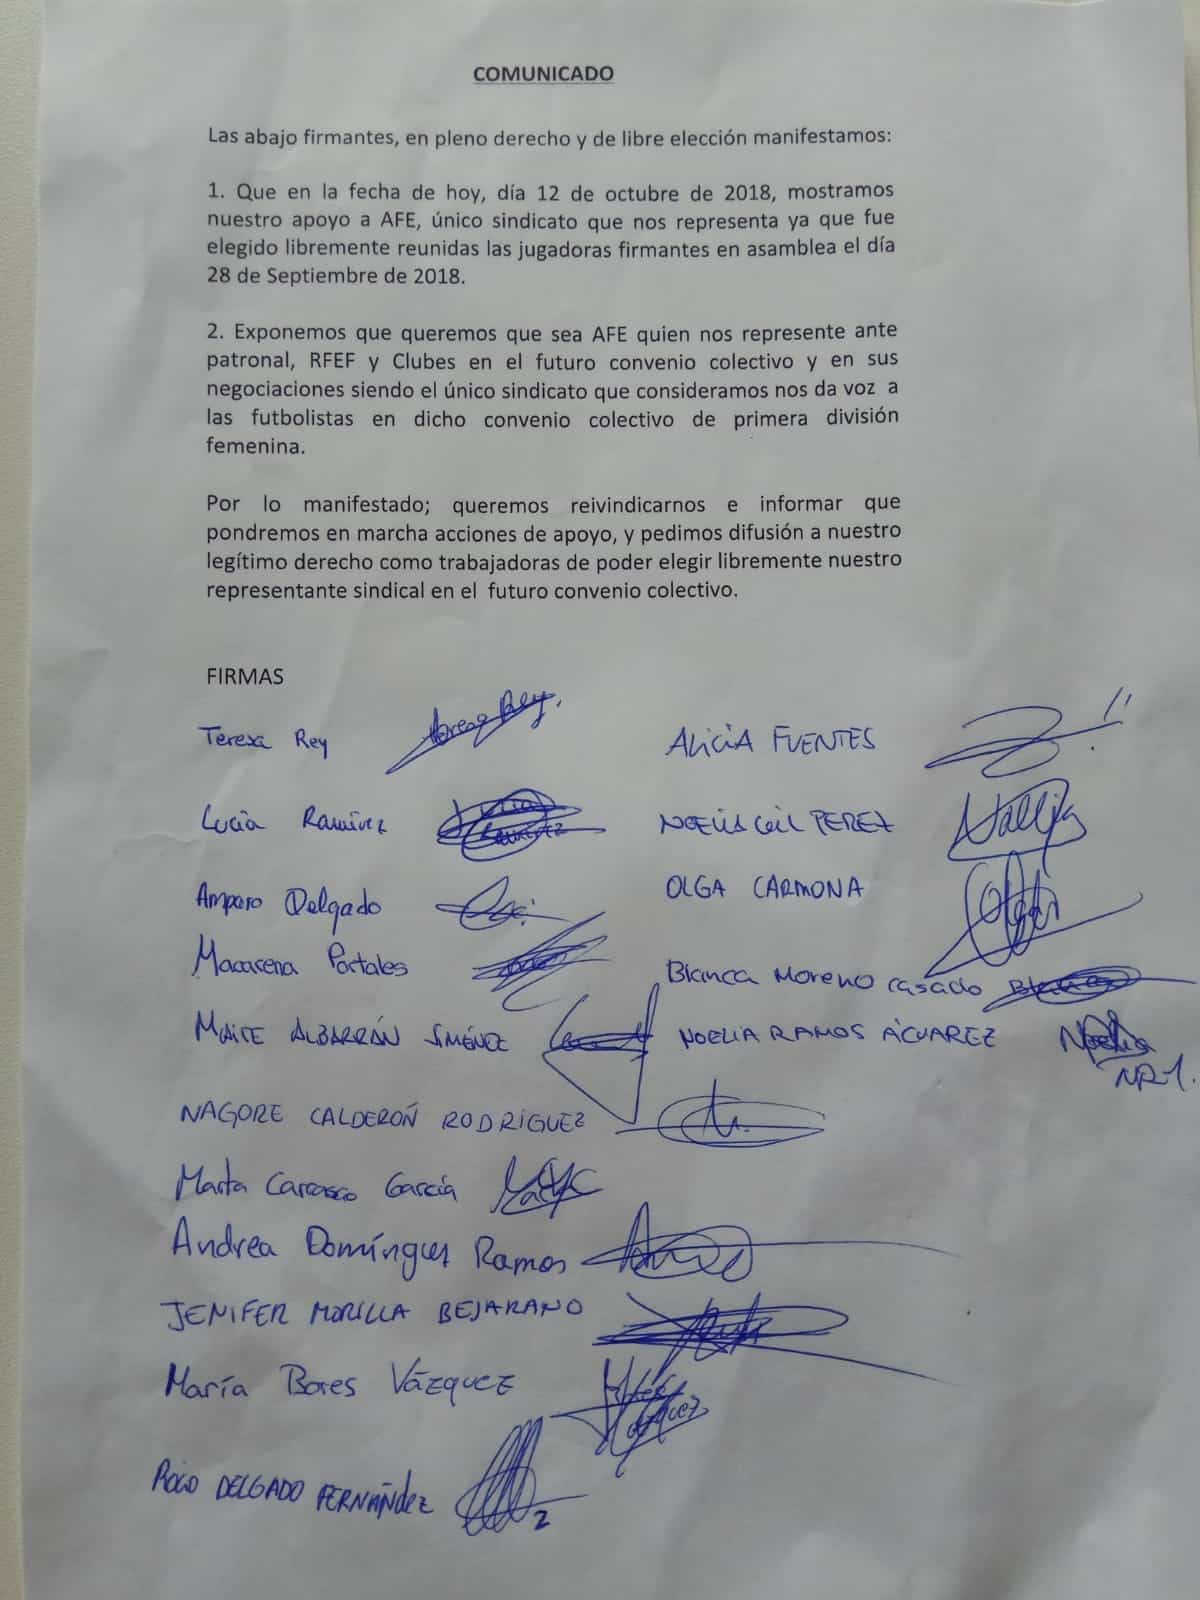 COMUNICADO
Las abajo firmantes, en pleno derecho y de libre elección manifestamos:
1. Que en la fecha de hoy, día 12 de octubre de 2018, mostramos
nuestro apoyo a AFE, único sindicato que nos representa ya que fue
elegido libremente reunidas las jugadoras firmantes en asamblea el día
28 de Septiembre de 2018.
2. Exponemos que queremos que sea AFE quien nos represente ante
patronal, RFEF y Clubes en el futuro convenio colectivo y en sus
negociaciones siendo el único sindicato que consideramos nos da voz a
las futbolistas en dicho convenio colectivo de primera división
femenina.
Por lo manifestado; queremos reivindicarnos e informar que
pondremos en marcha acciones de apoyo, y pedimos difusión a nuestro
legítimo derecho como trabajadoras de poder elegir libremente nuestro
representante sindical en el futuro convenio colectivo.
FIRMAS
Teresa Rey
Lucía Ramírez
Amparo Delgado
Macarena Portales
MAITE ALBARRÁN JIMÉNEZ
NAGORE CALDERÓN RODRÍGUEZ
Marta Carrasco García
Andrea Domínguez Ramos
JENIFER MORILLA BEJARANO
María Bores VÁZQUEZ
ROCÍO DELGADO FERNÁNDEZ
ALICIA FUENTES
NOELIA GIL PEREZ
OLGA CARMONA
Blanca Moreno Casado
NOELIA RAMOS ÁLVAREZ
Noelia
NR-1.